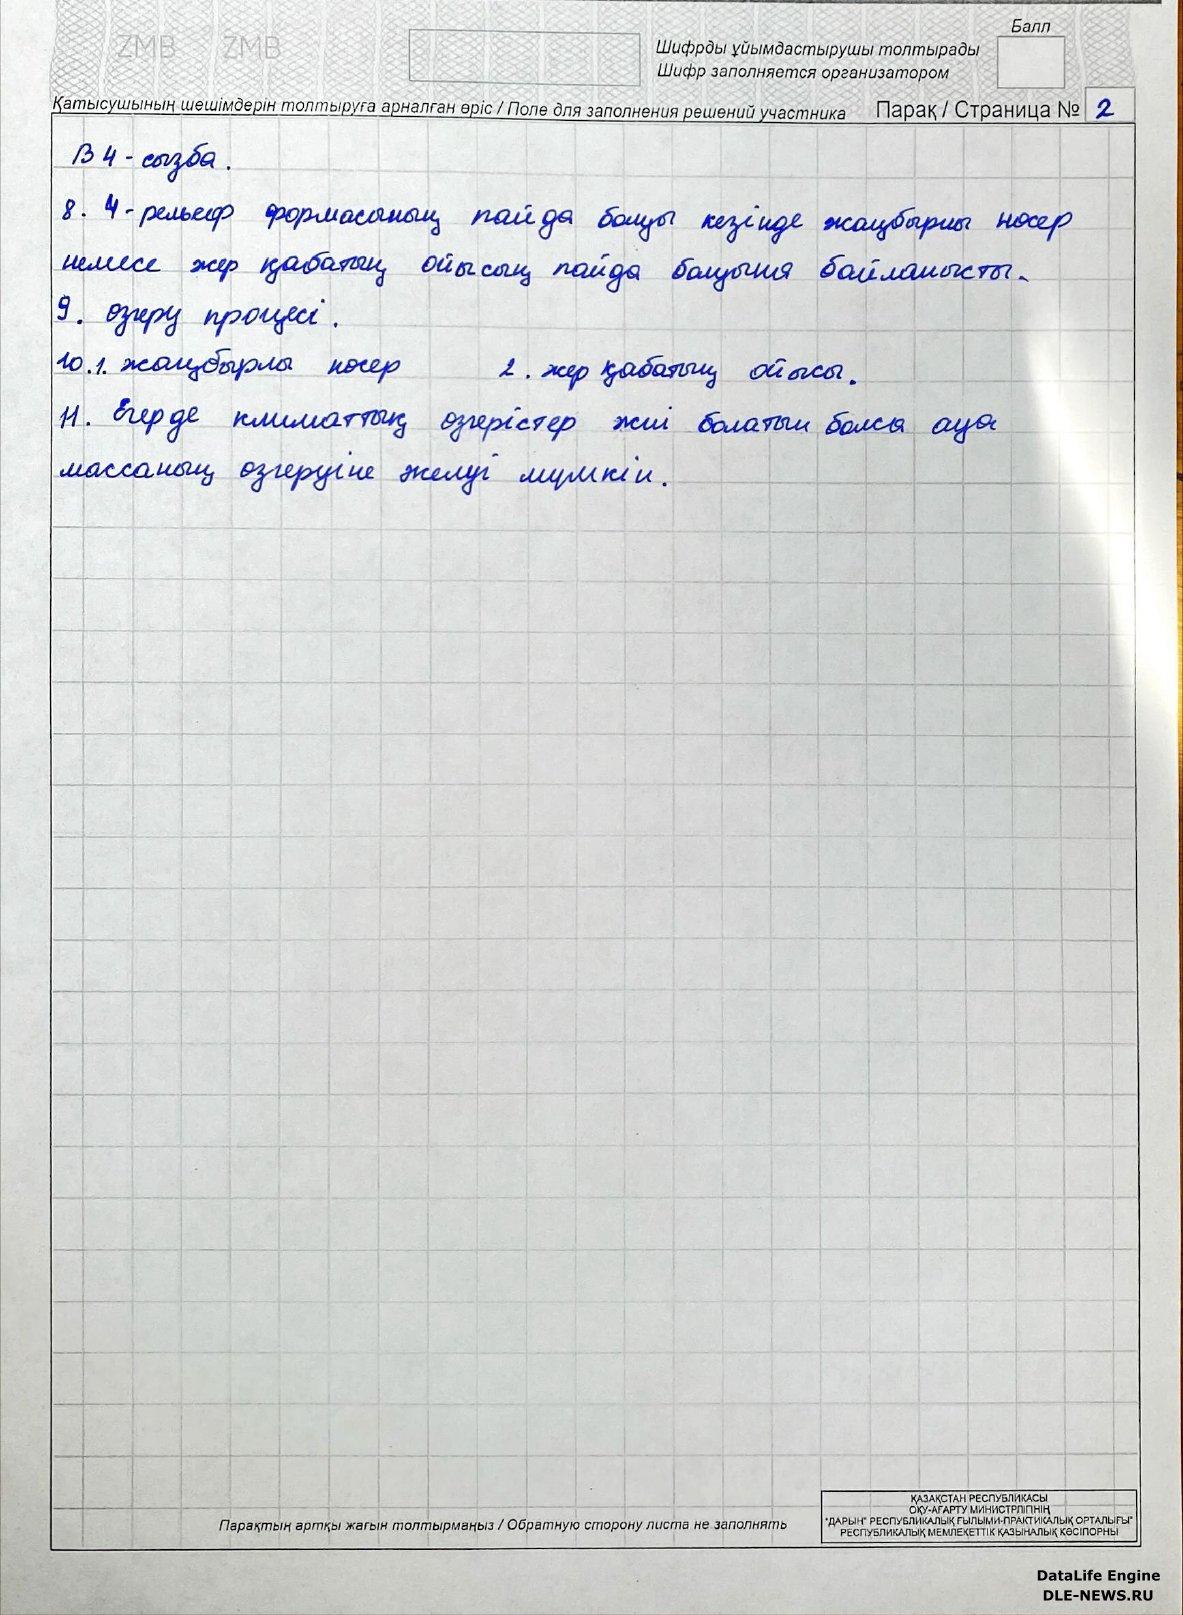 ZMB ZMB
Балл
Шифрды ұйымдастырушы толтырады
Шифр заполняется организатором
Қатысушының шешімдерін толтыруға арналған өріс / Поле для заполнения решений участника Парақ / Страница № 2
В 4 - сызба.
8. 4 - рельеф формасының пайда болуы кезінде жаңбырлы нөсер
немесе жер қабатың ойысың пайда болуына байланысты.
9. өзгеру процесі.
10.1. жаңбырлы нөсер 2. жер қабатың ойысы.
11. Егерде климаттың өзгерістер жиі болатын болса ауа
массаның өзгеруіне желуі мүмкін.
Парақтың артқы жағын толтырмаңыз / Обратную сторону листа не заполнять
ҚАЗАҚСТАН РЕСПУБЛИКАСЫ
ОҚУ-АҒАРТУ МИНИСТРЛІГІНІҢ
"ДАРЫН" РЕСПУБЛИКАЛЫҚ ҒЫЛЫМИ-ПРАКТИКАЛЫҚ ОРТАЛЫҒЫ"
РЕСПУБЛИКАЛЫҚ МЕМЛЕКЕТТІК ҚАЗЫНАЛЫҚ КӘСІПОРНЫ
DataLife Engine
DLE-NEWS.RU